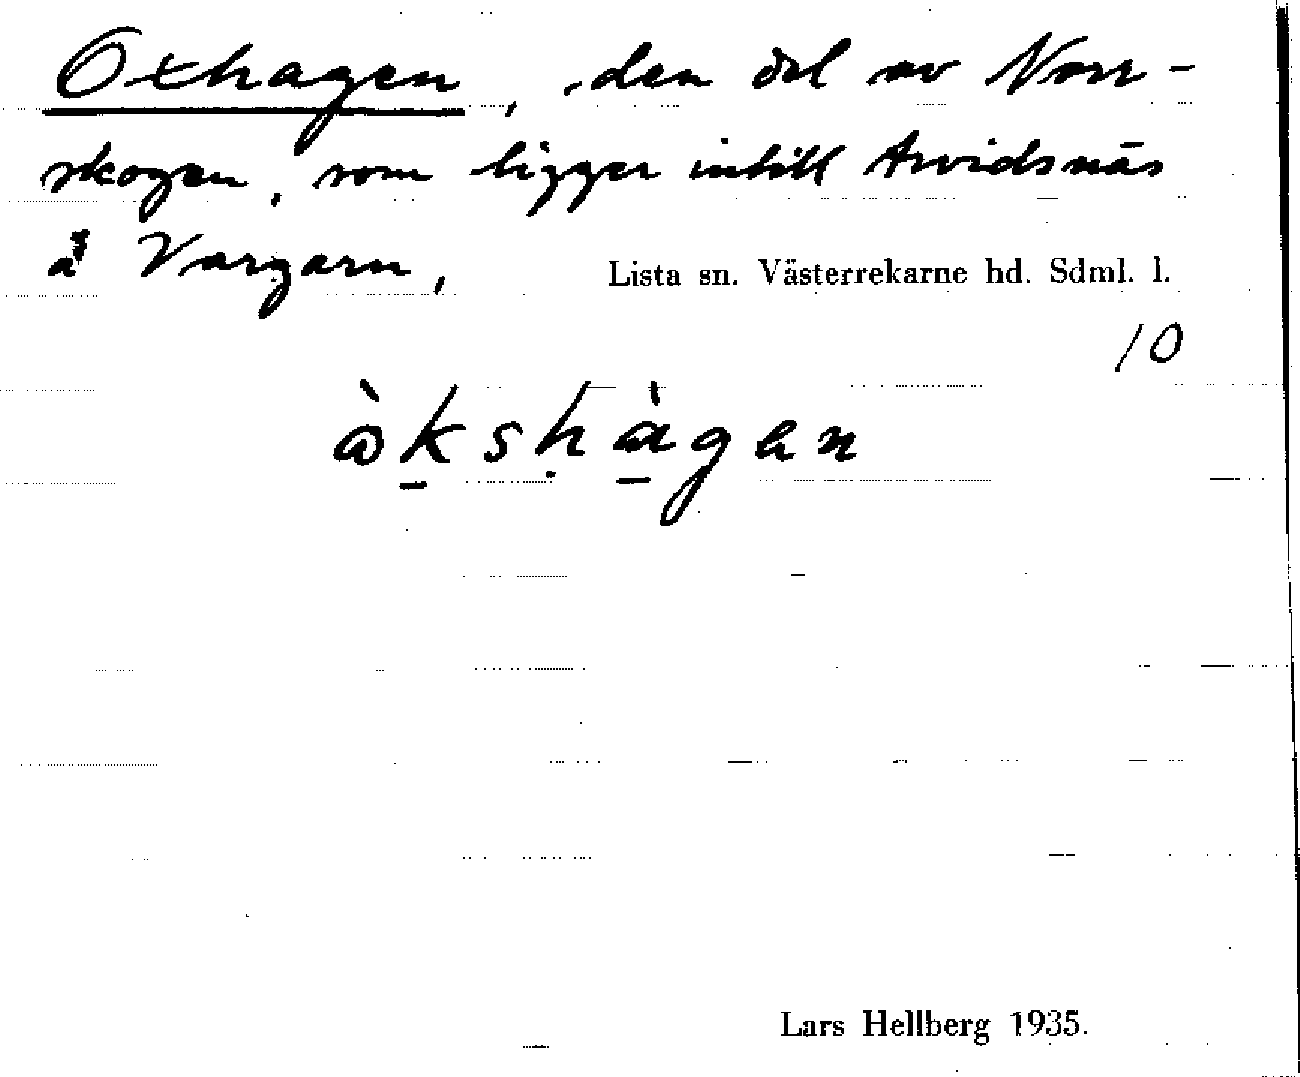 Oxhagen, den del av Norr-
skogen, som ligger intill Arvidsnäs
å Vargarn,
Lista sn. Västerrekarne hd. Sdml. l.
10
Lars Hellberg 1935.